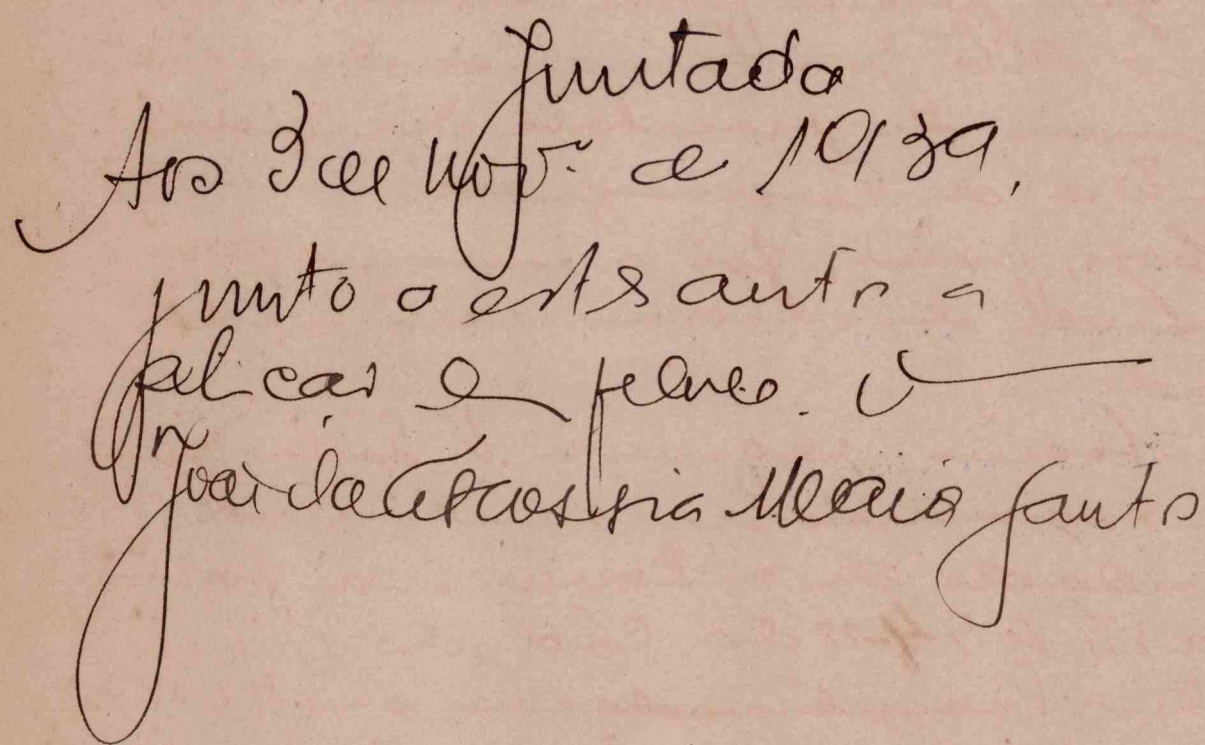 Juntada
Aos 3 de Nov.º de 1939,
junto a estes autos a
petição em frente. O
João da Maia Santos